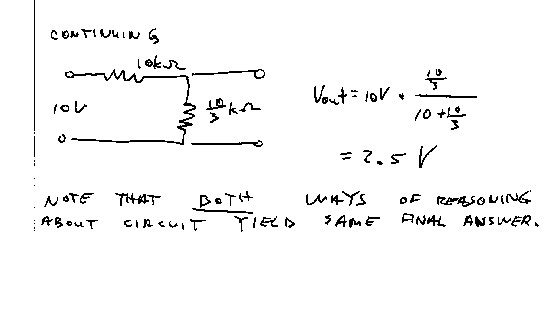 CONTINUING
10kΩ
10V
10/3 kΩ
Vout = 10V · (10/3)/(10 + 10/3)
= 2.5 V
NOTE THAT BOTH WAYS OF REASONING
ABOUT CIRCUIT YIELD SAME FINAL ANSWER.